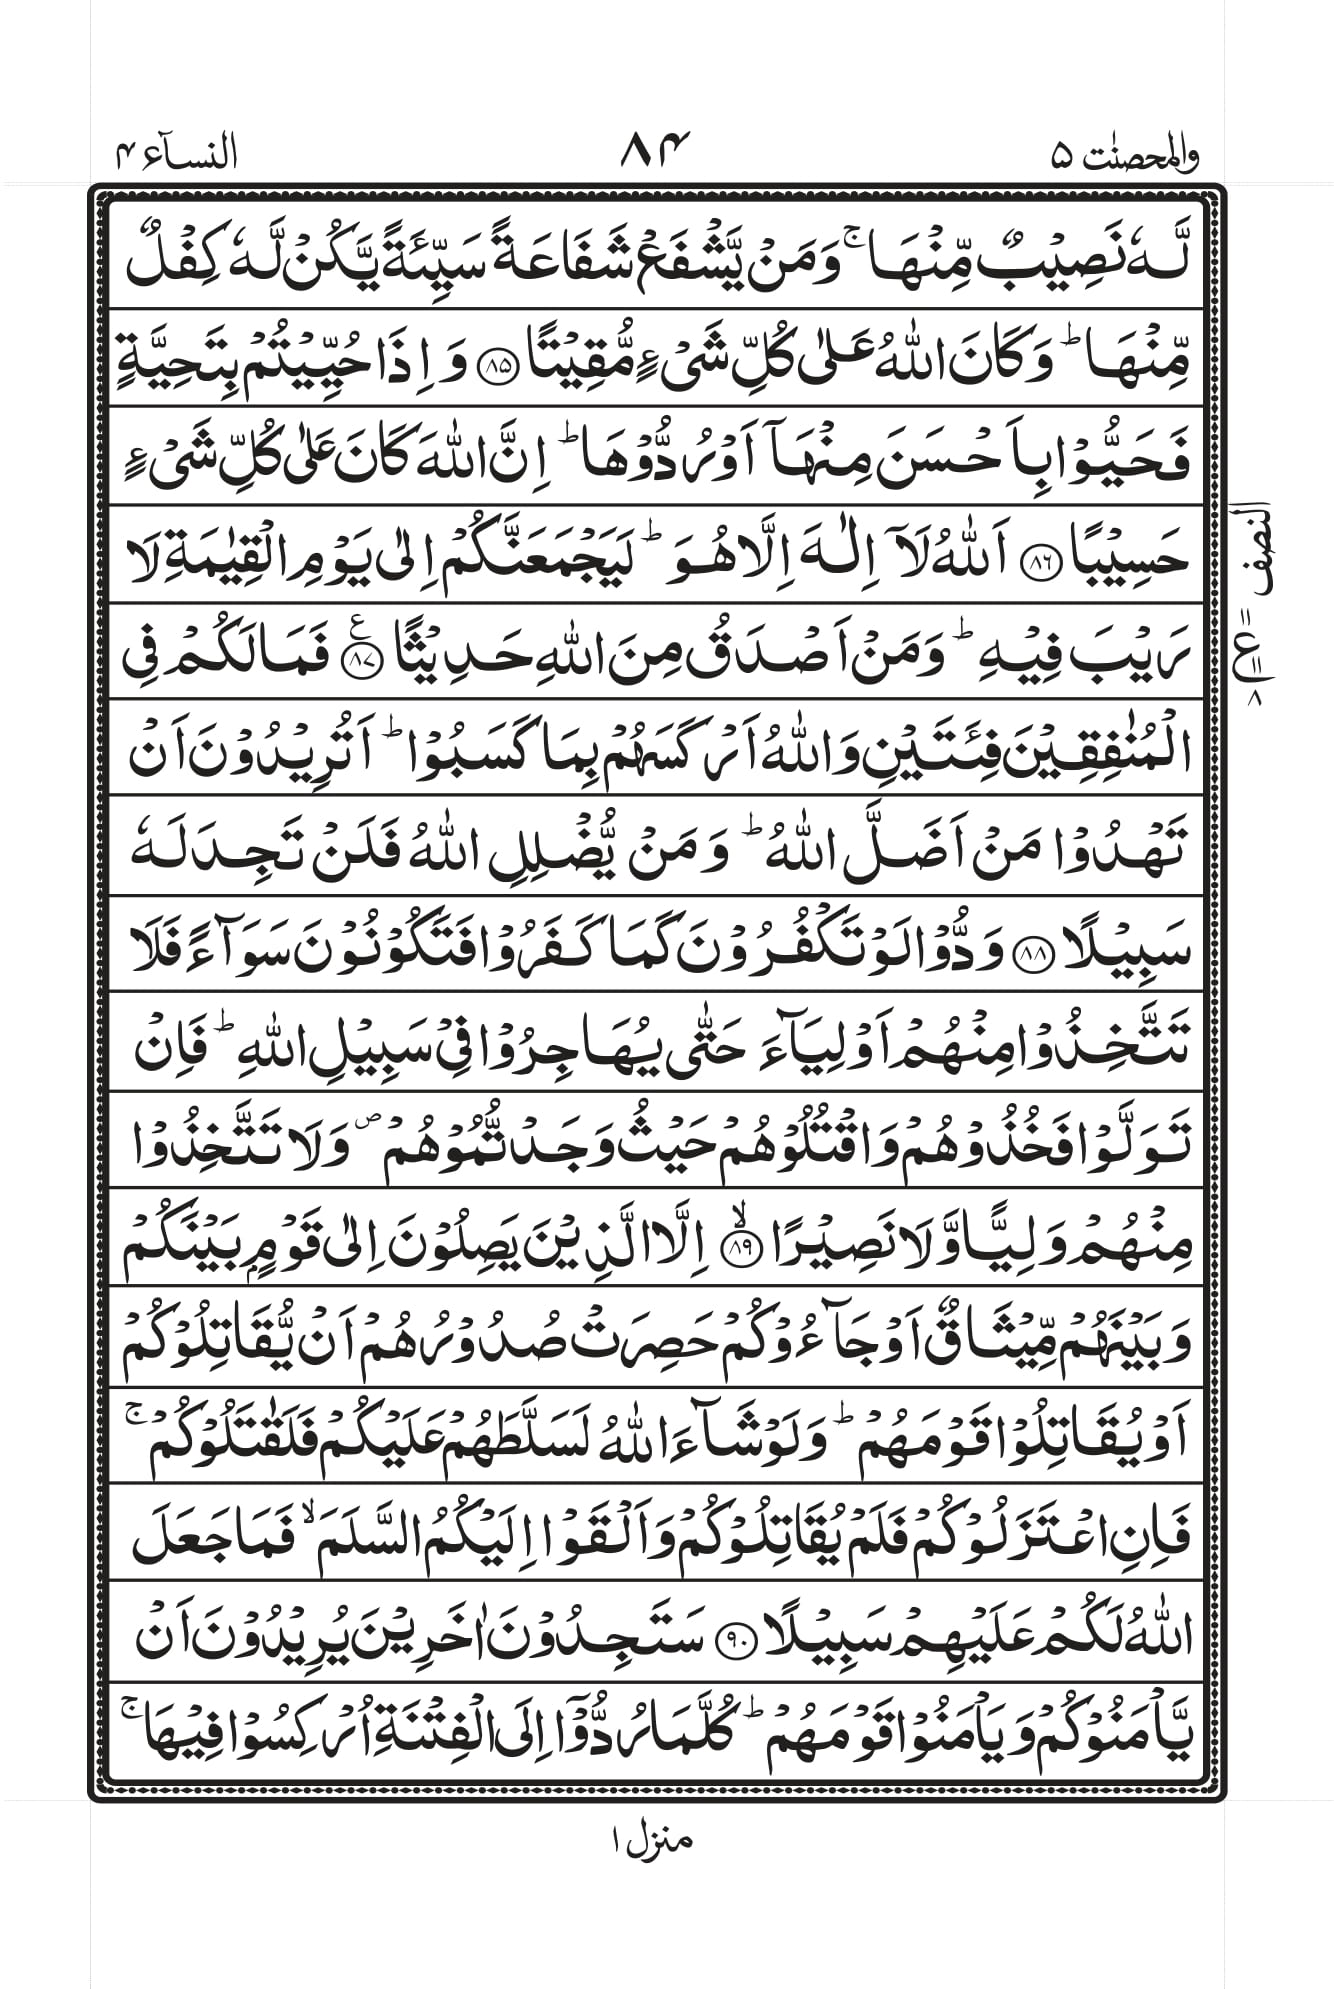 والمحصنٰت ۵ ۸۴ النسآء ۴
لَّهٗ نَصِيۡبٌ مِّنۡهَا ۚ وَمَنۡ يَّشۡفَعۡ شَفَاعَةً سَيِّئَةً يَّكُنۡ لَّهٗ كِفۡلٌ
مِّنۡهَا ؕ وَكَانَ اللّٰهُ عَلٰى كُلِّ شَىۡءٍ مُّقِيۡتًا ﴿۸۵﴾ وَ اِذَا حُيِّيۡتُمۡ بِتَحِيَّةٍ
فَحَيُّوۡا بِاَحۡسَنَ مِنۡهَاۤ اَوۡ رُدُّوۡهَا ؕ اِنَّ اللّٰهَ كَانَ عَلٰى كُلِّ شَىۡءٍ
حَسِيۡبًا ﴿۸۶﴾ اَللّٰهُ لَاۤ اِلٰهَ اِلَّا هُوَ ؕ لَيَجۡمَعَنَّكُمۡ اِلٰى يَوۡمِ الۡقِيٰمَةِ لَا
رَيۡبَ فِيۡهِ ؕ وَمَنۡ اَصۡدَقُ مِنَ اللّٰهِ حَدِيۡثًا ﴿۸۷﴾ ع فَمَا لَكُمۡ فِى
الۡمُنٰفِقِيۡنَ فِئَتَيۡنِ وَاللّٰهُ اَرۡكَسَهُمۡ بِمَا كَسَبُوۡا ؕ اَتُرِيۡدُوۡنَ اَنۡ
تَهۡدُوۡا مَنۡ اَضَلَّ اللّٰهُ ؕ وَمَنۡ يُّضۡلِلِ اللّٰهُ فَلَنۡ تَجِدَ لَهٗ
سَبِيۡلًا ﴿۸۸﴾ وَدُّوۡا لَوۡ تَكۡفُرُوۡنَ كَمَا كَفَرُوۡا فَتَكُوۡنُوۡنَ سَوَآءً فَلَا
تَتَّخِذُوۡا مِنۡهُمۡ اَوۡلِيَآءَ حَتّٰى يُهَاجِرُوۡا فِىۡ سَبِيۡلِ اللّٰهِ ؕ فَاِنۡ
تَوَلَّوۡا فَخُذُوۡهُمۡ وَاقۡتُلُوۡهُمۡ حَيۡثُ وَجَدۡتُّمُوۡهُمۡ ۖ وَلَا تَتَّخِذُوۡا
مِنۡهُمۡ وَلِيًّا وَّلَا نَصِيۡرًا ۙ﴿۸۹﴾ اِلَّا الَّذِيۡنَ يَصِلُوۡنَ اِلٰى قَوۡمٍۢ بَيۡنَكُمۡ
وَبَيۡنَهُمۡ مِّيۡثَاقٌ اَوۡ جَآءُوۡكُمۡ حَصِرَتۡ صُدُوۡرُهُمۡ اَنۡ يُّقَاتِلُوۡكُمۡ
اَوۡ يُقَاتِلُوۡا قَوۡمَهُمۡ ؕ وَلَوۡ شَآءَ اللّٰهُ لَسَلَّطَهُمۡ عَلَيۡكُمۡ فَلَقٰتَلُوۡكُمۡ ۚ
فَاِنِ اعۡتَزَلُوۡكُمۡ فَلَمۡ يُقَاتِلُوۡكُمۡ وَاَلۡقَوۡا اِلَيۡكُمُ السَّلَمَ ۙ فَمَا جَعَلَ
اللّٰهُ لَكُمۡ عَلَيۡهِمۡ سَبِيۡلًا ﴿۹۰﴾ سَتَجِدُوۡنَ اٰخَرِيۡنَ يُرِيۡدُوۡنَ اَنۡ
يَّاۡمَنُوۡكُمۡ وَيَاۡمَنُوۡا قَوۡمَهُمۡ ؕ كُلَّمَا رُدُّوۡۤا اِلَى الۡفِتۡنَةِ اُرۡكِسُوۡا فِيۡهَا ۚ
النصف
ع ۸
منزل ۱